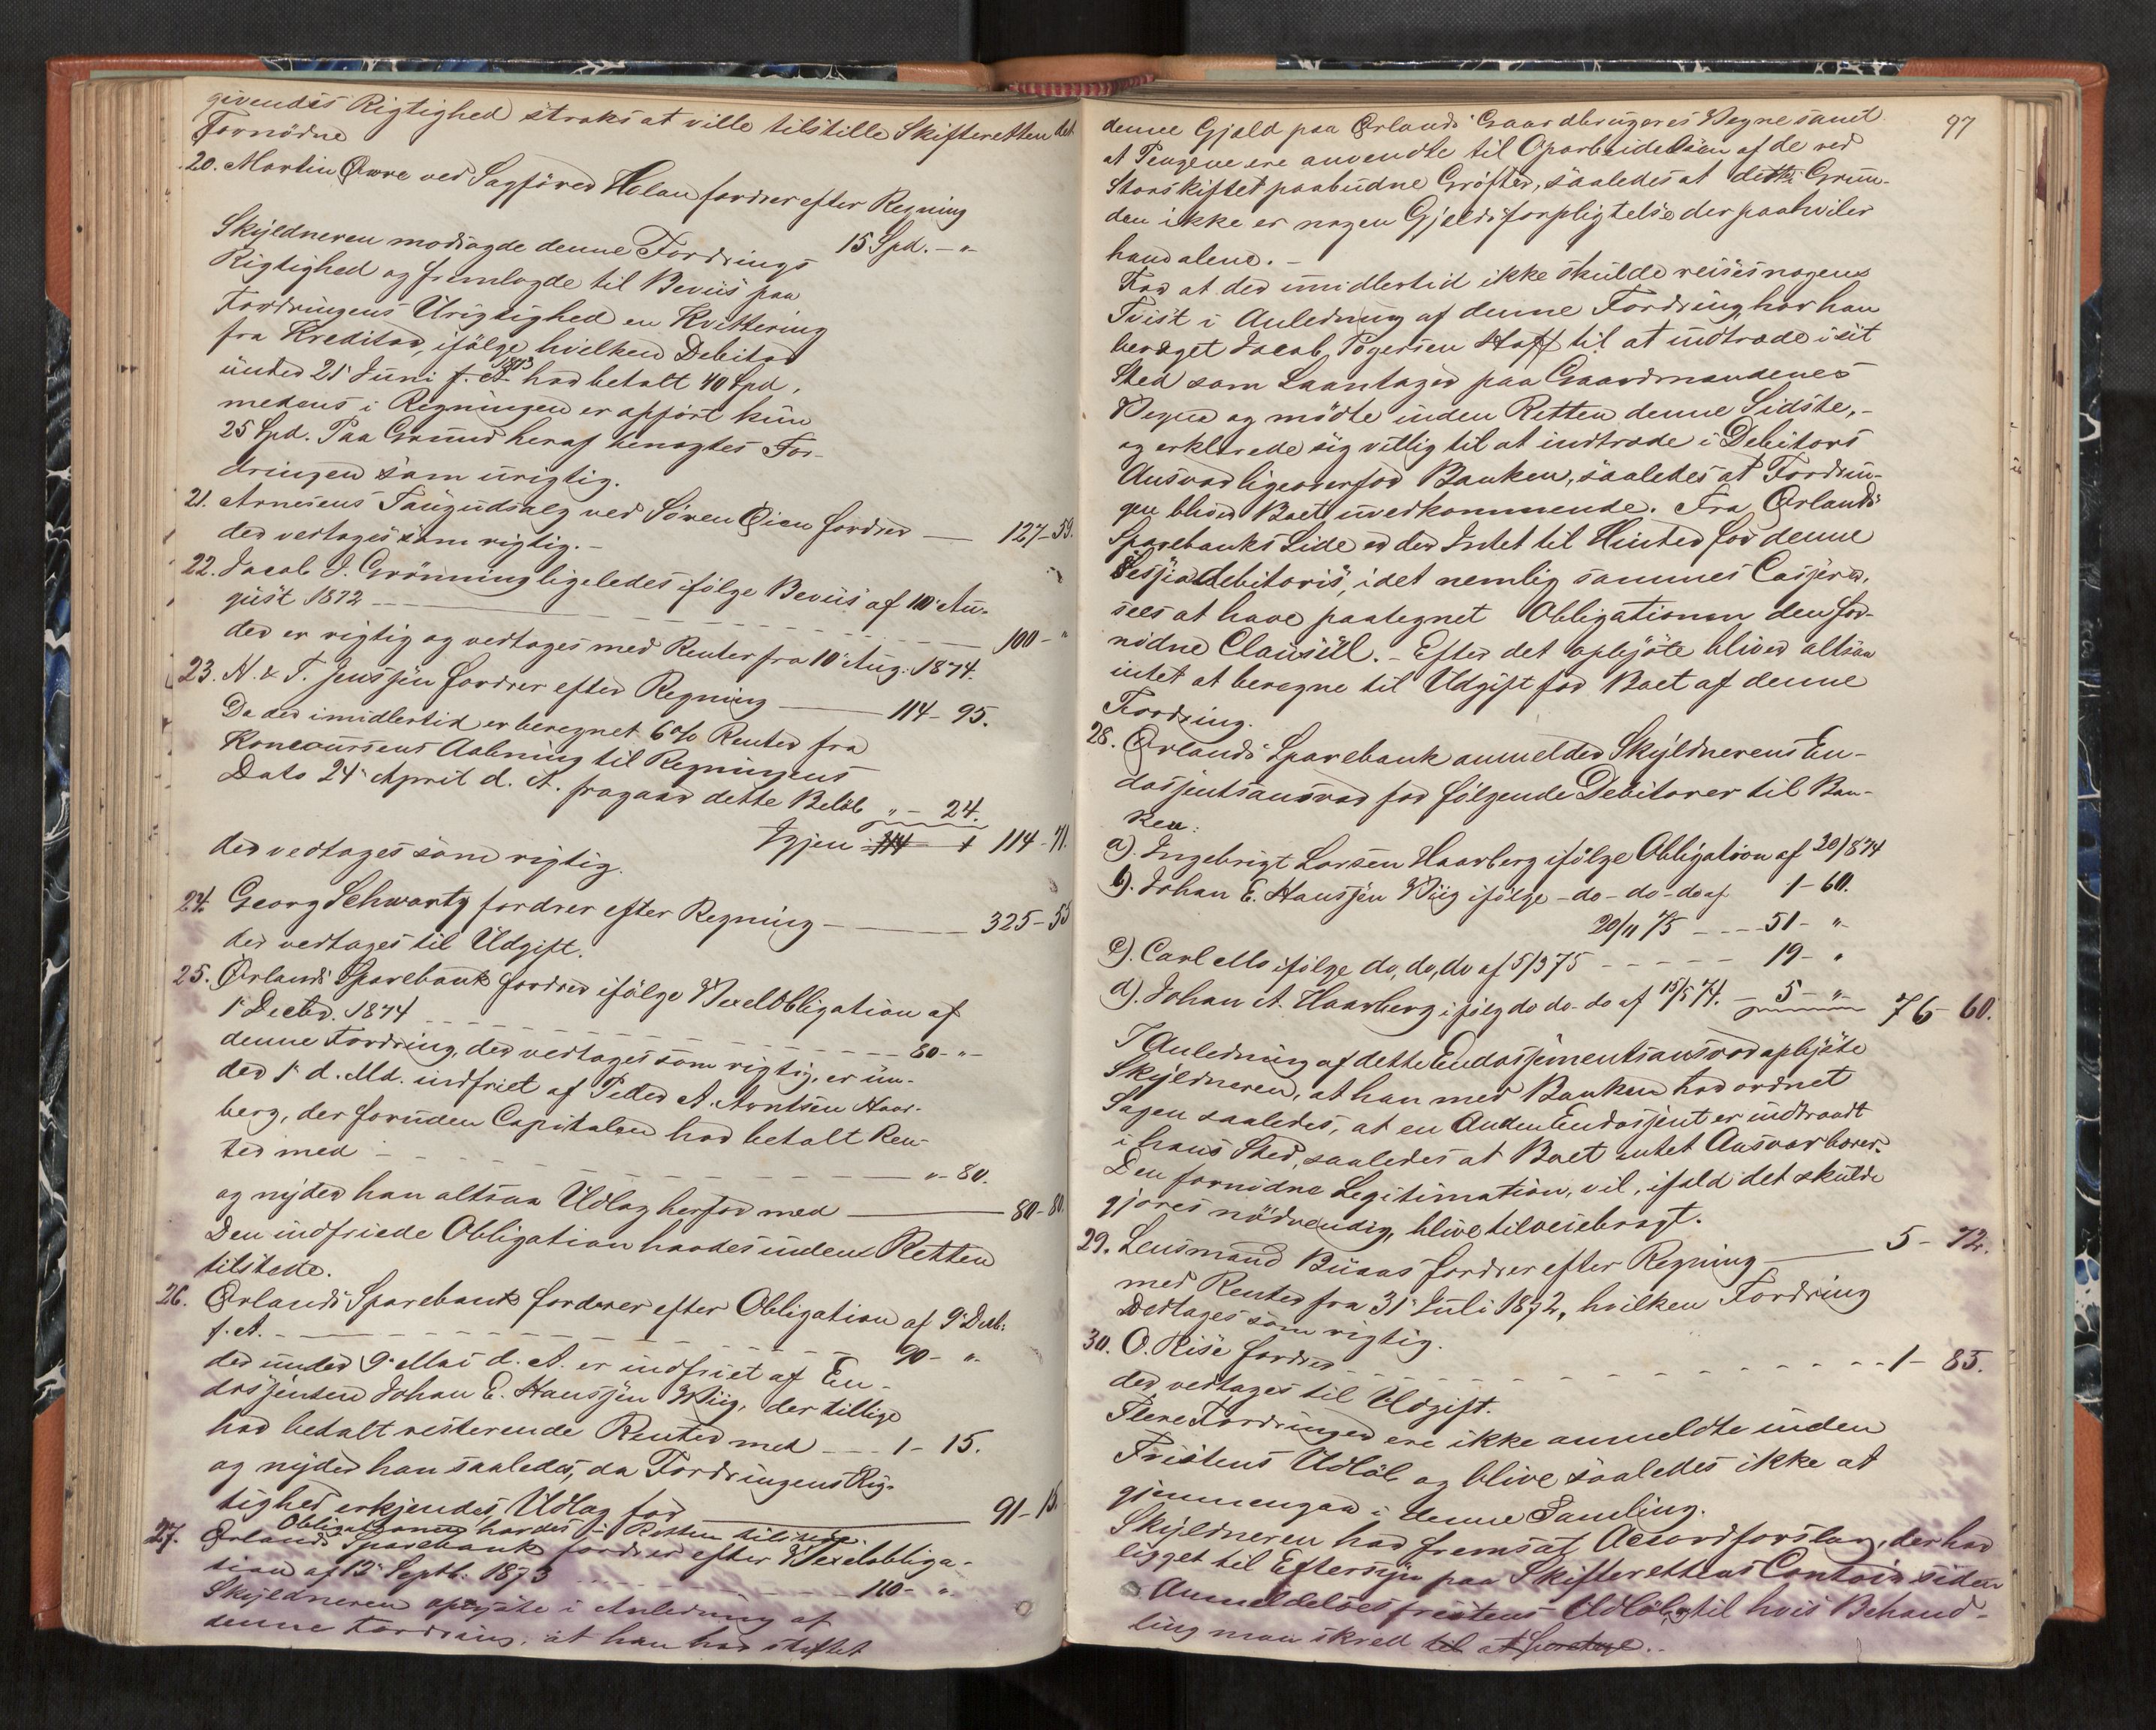 givendes Rigtighed straks at ville tilstille Skifteretten det
Fornödne
20. Martin Owre ved Sagförer Holan fordrer efter Regning
15 Spd. - "
Skyldneren modsagde denne Fordrings
Rigtighed og fremlagde til Beviis paa
Fordringens Urigtighed en Kvittering
fra Kreditor, ifölge hvilken Debitor
under 21' Juni f. A. 1873 har betalt 40 Spd,
medens i Regningen er opfört kun
25 Spd. Paa Grund heraf benegtes For-
dringen som urigtig.
21. Arnesens Taugudsalg ved Sören Öien fordrer — 127-59.
der vedtages som rigtig. -
22. Jacob J. Grönning ligeledes ifölge Beviis af 10' Au-
gust 1872 — 100 - "
der er rigtig og vedtages med Renter fra 10' Aug: 1874.
23. N. & T. Jenssen fordrer efter Regning — 114 - 95.
Da der imidlertid er beregnet 6% Renter fra
Koncoursens Aabning til Regningens
Dato 24' April d. A. fragaar dette Belöb " - 24.
Igjen 114 114 - 71.
der vedtages som rigtig.
24. Georg Schwartz fordrer efter Regning — 325 - 55
der vedtages til Udgift.
25. Örlands Sparebank fordrer ifölge Vexelobligation af
1' Decbr. 1874 — 80 - " -
denne Fordring, der vedtages som rigtig, er un-
der 1' d. Md. indfriet af Peder A. Arntsen Haar-
berg, der foruden Capitalen har betalt Ren-
ter med — " - 80.
og nyder han altsaa Udlag herfor med — 80 - 80.
Den indfriede Obligation haves inden Retten
tilstede.
26. Örlands Sparebank fordrer efter Obligation af 9' Decb:
f. A. — 90 - "
der under 9' Mai d. A. er indfriet af En-
dossjenten Johan E. Hanssen Wiig, der tillige
har betalt resterende Renter med — 1 - 15.
og nyder han saaledes, da Fordringens Rig-
tighed erkjendes, Udlag for — 91 - 15.
Obligationen havdes i Retten tilstede.
27. Örlands Sparebank fordrer efter Vexelobliga-
tion af 12' Septb: 1873 — 110 - "
Skyldneren oplyste i Anledning af
denne Fordring, at han har stiftet
97
denne Gjæld paa Örlands Gaardbrugeres Vegne samt
at Pengene ere anvendte til Oparbeidelsen af de ved
Storskiftet paabudne Gröfter, saaledes at dette i Grun-
den ikke er nogen Gjældsforpligtelse der paahviler
ham alene. -
For at der imidlertid ikke skulde reises nogen
Tvist i Anledning af denne Fordring, har han
bevæget Jacob Pogersen Hoff til at indtræde i sit
Sted som Laantager paa Gaardmændenes
Vegne og mödte inden Retten denne Sidste, -
og erklærede sig villig til at indtræde i Debitors
Ansvar ligeoverfor Banken, saaledes at Fordrin-
gen bliver Boet uvedkommende. Fra Örlands
Sparebanks Side er der Intet til Hinder for denne
Cessio debitoris, idet nemlig sammes Casserer,
sees at have paategnet Obligationen den for-
nödne Clausul. - Efter det oplyste bliver altsaa
intet at beregne til Udgift for Boet af denne
Fordring.
28. Örlands Sparebank anmelder Skyldnerens En-
dossjentsansvar for fölgende Debitorer til Ban-
ken:
a). Ingebrigt Larsen Haarberg ifölge Obligation af 20/8 74
1 - 60.
b). Johan E. Hanssen Wiig ifölge - do - do - do af
20/11 75 — 51 - "
c). Carl Mo ifölge do, do, do af 5/3 75 — 19 - "
d). Johan A. Haarberg ifölg do do - do af 15/5 74. — 5 - " 76 - 60.
I Anledning af dette Endossementsansvar oplyste
Skyldneren, at han med Banken har ordnet
Sagen saaledes, at en Anden Endossjent er indtraadt
i hans Sted, saaledes at Boet intet Ansvar bærer.
Den fornödne Legitimation, vil, ifald det skulde
gjöres nödvendig, blive tilveiebragt.
29. Lensmand Buaas fordrer efter Regning — 5 - 72.
med Renter fra 31' Juli 1872, hvilken Fordring
vedtages som rigtig.
30. O. Rise fordrer — 1 - 85.
der vedtages til Udgift.
Flere Fordringer ere ikke anmeldte inden
Fristens Udlöb og blive saaledes ikke at
gjennemgaa i denne Samling.
Skyldneren har fremsat Accordforslag, der har
ligget til Eftersyn paa Skifterettens Contoir siden
Anmeldelsesfristens Udlöb, og til hvis Behand-
ling man skred til at foretage. -